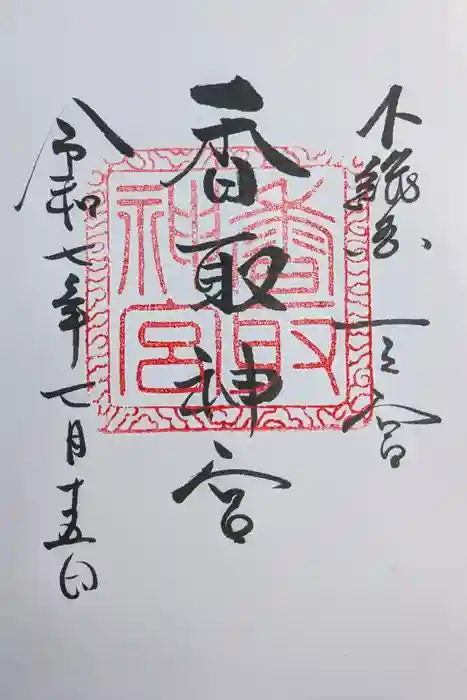 下総国一之宮
香取神宮
香取神宮
令和七年七月十五日